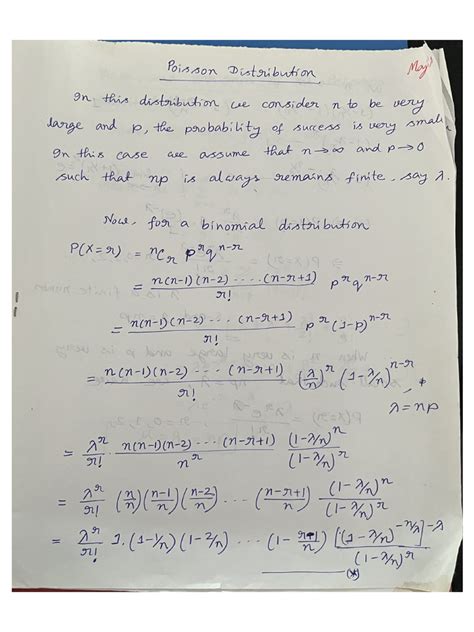 Poisson Distribution
In this distribution we consider n to be very
large and p, the probability of success is very small
In this case we assume that n→∞ and p→0
such that np is always remains finite, say λ.
Now, for a binomial distribution
P(X=r) = ⁿCᵣ pʳ qⁿ⁻ʳ
= n(n-1)(n-2) ....(n-r+1) / r! pʳ qⁿ⁻ʳ
= n(n-1)(n-2) ... (n-r+1) / r! pʳ (1-p)ⁿ⁻ʳ
= n(n-1)(n-2) ... (n-r+1) / r! (λ/n)ʳ (1-λ/n)ⁿ⁻ʳ,
λ = np
= λʳ/r! . n(n-1)(n-2) ... (n-r+1) / nʳ (1-λ/n)ⁿ / (1-λ/n)ʳ
= λʳ/r! (n/n) (n-1/n) (n-2/n) ... (n-r+1/n) (1-λ/n)ⁿ / (1-λ/n)ʳ
= λʳ/r! 1. (1-1/n) (1-2/n) ... (1- r-1/n) [(1-λ/n)^(-n/λ)]^(-λ) / (1-λ/n)ʳ
(*)